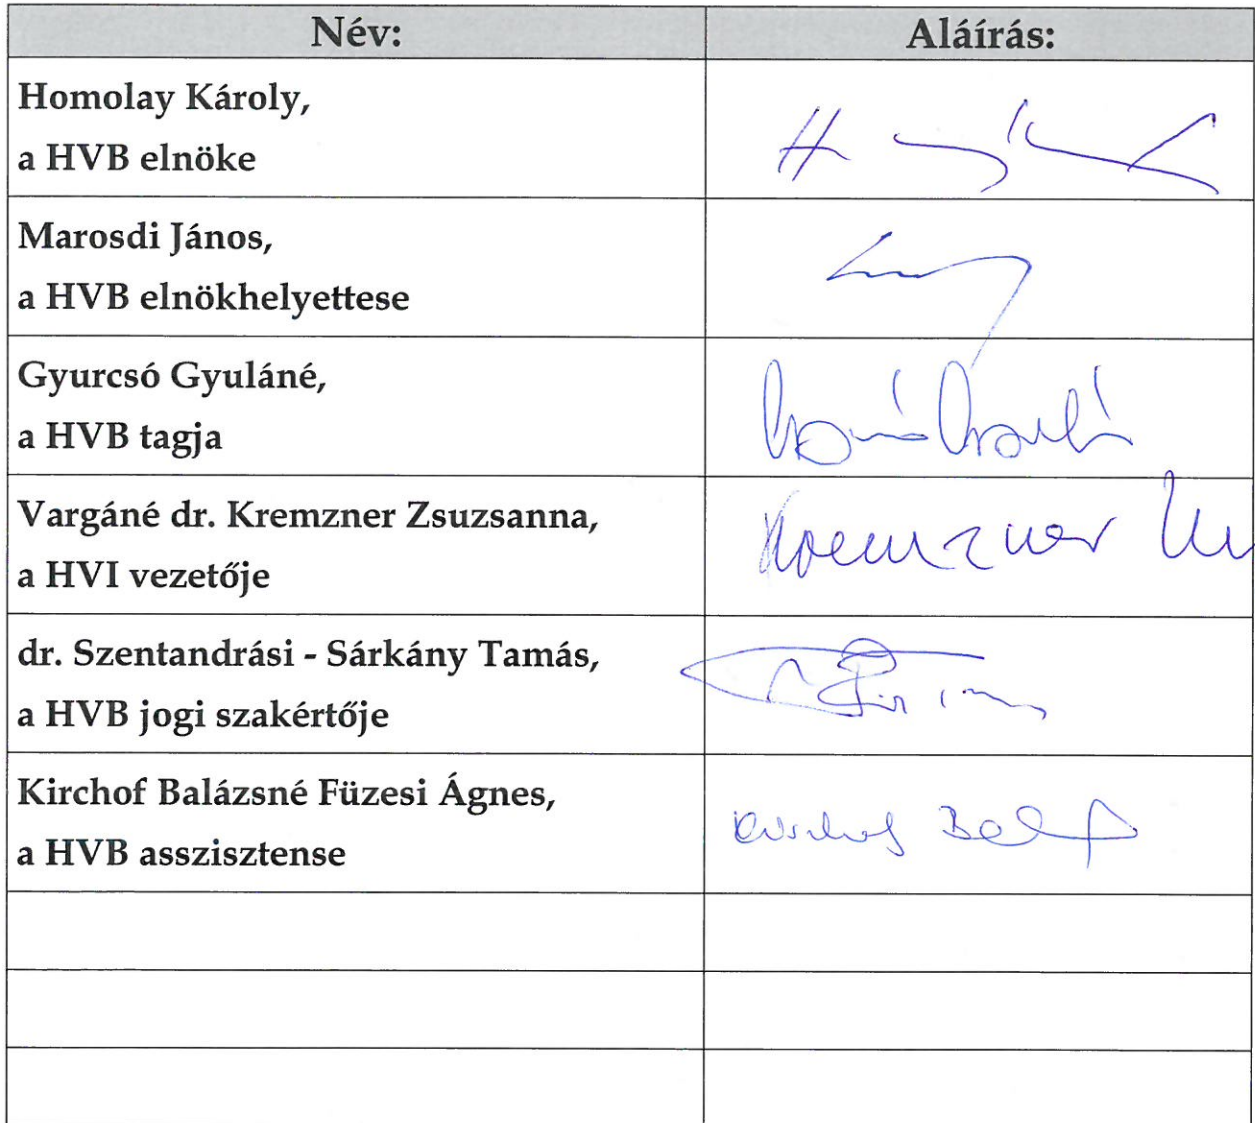 Név:
Aláírás:
Homolay Károly,
a HVB elnöke
Marosdi János,
a HVB elnökhelyettese
Gyurcsó Gyuláné,
a HVB tagja
Vargáné dr. Kremzner Zsuzsanna,
a HVI vezetője
Kremzner
dr. Szentandrási - Sárkány Tamás,
a HVB jogi szakértője
Kirchof Balázsné Füzesi Ágnes,
a HVB asszisztense